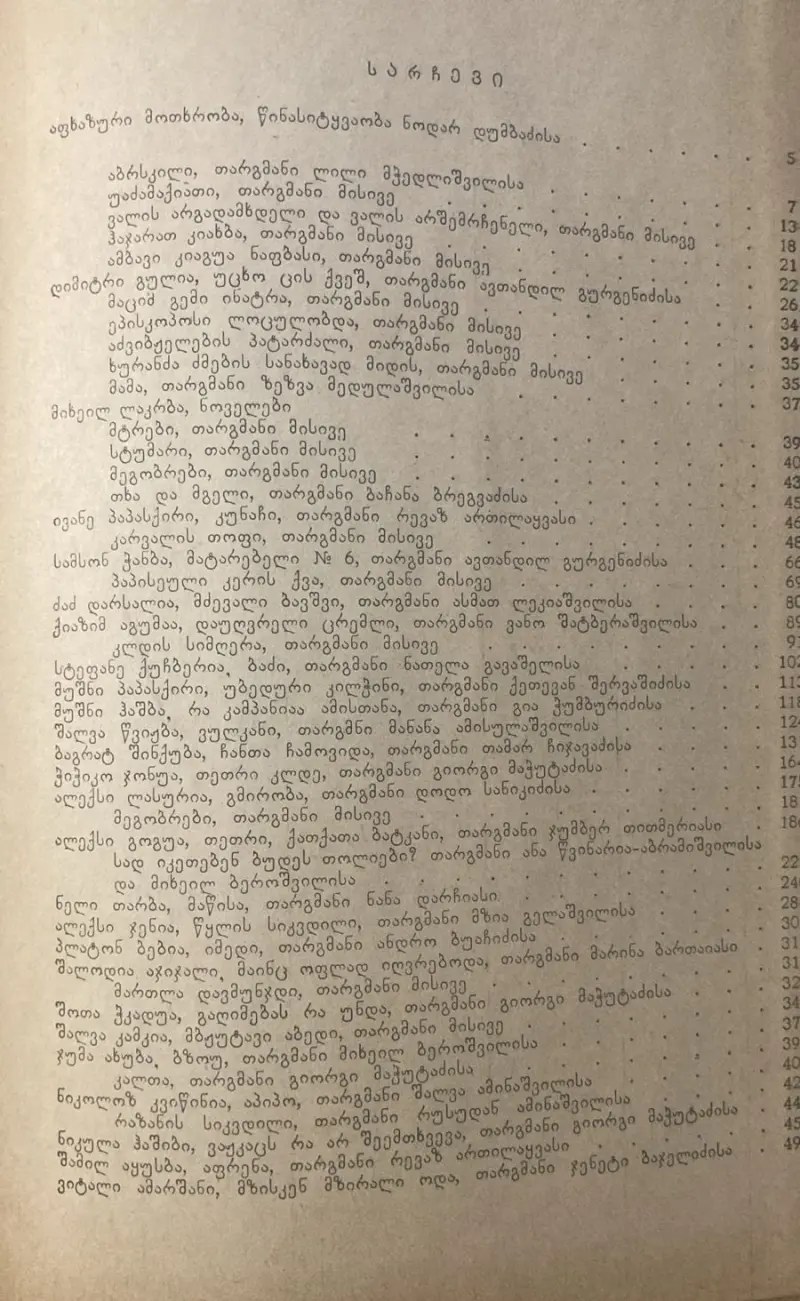 სარჩევი
აფხაზური მოთხრობა, წინასიტყვაობა ნოდარ დუმბაძისა . . . . . . 5
აბრსკილი, თარგმანი ლილი მჭედლიშვილისა . . . . . . 7
უაძამაქიათი, თარგმანი მისივე . . . . . . 13
ვალის არგადამხდელი და ვალის არშემრჩენელი, თარგმანი მისივე . . 18
ჰაჯარათ კიახბა, თარგმანი მისივე . . . . . . 21
ამბავი კიაგუა ნაფბასი, თარგმანი მისივე . . . . . . 22
დიმიტრი გულია, უცხო ცის ქვეშ, თარგმანი ავთანდილ გურგენიძისა . . 26
მაციმ გემი ინატრა, თარგმანი მისივე . . . . . . 34
ეპისკოპოსი ლოცულობდა, თარგმანი მისივე . . . . . . 34
აძვიბჟელების პატარძალი, თარგმანი მისივე . . . . . . 35
ხურანძა ძმების სანახავად მიდის, თარგმანი მისივე . . . . 35
მამა, თარგმანი ზეზვა მედულაშვილისა . . . . . . 37
მიხეილ ლაკრბა, ნოველები
მტრები, თარგმანი მისივე . . . . . . 39
სტუმარი, თარგმანი მისივე . . . . . . 40
მეგობრები, თარგმანი მისივე . . . . . . 43
თხა და მგელი, თარგმანი ბაჩანა ბრეგვაძისა . . . . . . 45
ივანე პაპასქირი, კუნაჩი, თარგმანი რევაზ ართილაყვასი . . . . . 46
კარვალის თოფი, თარგმანი მისივე . . . . . . 48
სამსონ ჭანბა, მატარებელი № 6, თარგმანი ავთანდილ გურგენიძისა . . . 66
პაპისეული კერის ქვა, თარგმანი მისივე . . . . . . 69
ძაძ დარსალია, მძევალი ბავშვი, თარგმანი ასმათ ლეკიაშვილისა . . . . 80
ქიაზიმ აგუმაა, დაუღვრელი ცრემლი, თარგმანი ვანო შატბერაშვილისა . . 89
კლდის სიმღერა, თარგმანი მისივე . . . . . . 9
სტეფანე ქუჩბერია, ბაძი, თარგმანი ნათელა გავაშელისა . . . . . 102
მუშნი პაპასქირი, უბედური კილშინი, თარგმანი ქეთევან შერვაშიძისა . . 113
მუშნი ჰაშბა, რა კამპანიაა ამისთანა, თარგმანი გია ჭუმბურიძისა . . . 118
შალვა წვიჟბა, ვულკანი, თარგმნი მანანა ამისულაშვილისა . . . . . 124
ბაგრატ შინქუბა, ჩანთა ჩამოვიდა, თარგმანი თამარ ჩიჯავაძისა . . . . 13
ჭიჭიკო ჯონუა, თეთრი კლდე, თარგმანი გიორგი მაჭუტაძისა . . . . . 164
ალექსი ლასურია, გმირობა, თარგმანი დოდო სანიკიძისა . . . . . 175
მეგობრები, თარგმანი მისივე . . . . . . 18
ალექსი გოგუა, თეთრი, ქათქათა ბატკანი, თარგმანი ჯუმბერ თითმერიასი . 18
სად იკეთებენ ბუდეს თოლიები? თარგმანი ანა წვინარია-აბრამიშვილისა
და მიხეილ ბეროშვილისა . . . . . . 22
ნელი თარბა, მაწისა, თარგმანი ნანა დარჩიასი . . . . . . 24
ალექსი ჯენია, წყლის სიკვდილი, თარგმანი მზია გელაშვილისა . . . . 28
პლატონ ბებია, იმედი, თარგმანი ანდრო ბუაჩიძისა . . . . . . 30
შალოდია აჯინჯალი, მაინც ოფლად იღვრებოდა, თარგმანი მარინა ბართაიასი . 31
მართლა დავმუნჯდი, თარგმანი მისივე . . . . . . 31
შოთა ჭკადუა, გაღიმებას რა უნდა, თარგმანი გიორგი მაჭუტაძისა . . . 32
შალვა კამკია, მბჟუტავი აბედი, თარგმანი მისივე . . . . . . 34
ჯუმა ახუბა, ბზოუ, თარგმანი მიხეილ ბეროშვილისა . . . . . . 37
კალთა, თარგმანი გიორგი მაჭუტაძისა . . . . . . 39
ნიკოლოზ კვიწინია, აპიპო, თარგმანი შალვა ამინაშვილისა . . . . . 40
რაზანის სიკვდილი, თარგმანი რუსუდან ამინაშვილისა . . . . 42
ნიკულა ჰაშიბი, ვაჟკაცს რა არ შეემთხვევა, თარგმანი გიორგი მაჭუტაძისა . 44
შამილ აყუსბა, აფრენა, თარგმანი რევაზ ართილაყვასი . . . . . . 45
ვიტალი ამარშანი, მზისკენ მზირალი ოდა, თარგმანი ჯენეტი ბაჯელიძისა . 49